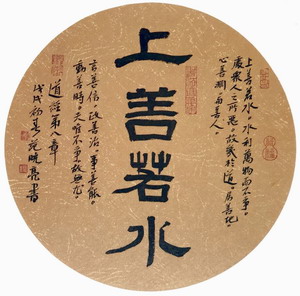 上善若水
上善若水。水利萬物而不爭。
處衆人之所惡。故幾於道。居善地。
心善淵。與善人。
言善信。政善治。事善能。
動善時。夫唯不爭。故無尤。
道經第八章
戊戌初春 曉亮書